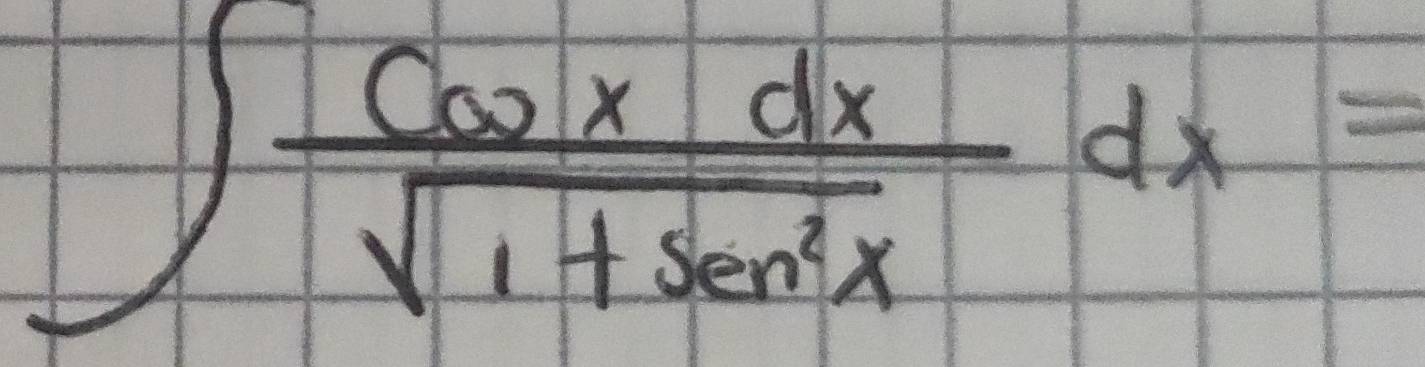 ∫ Cos x dx / √(1 + sen²x) dx =